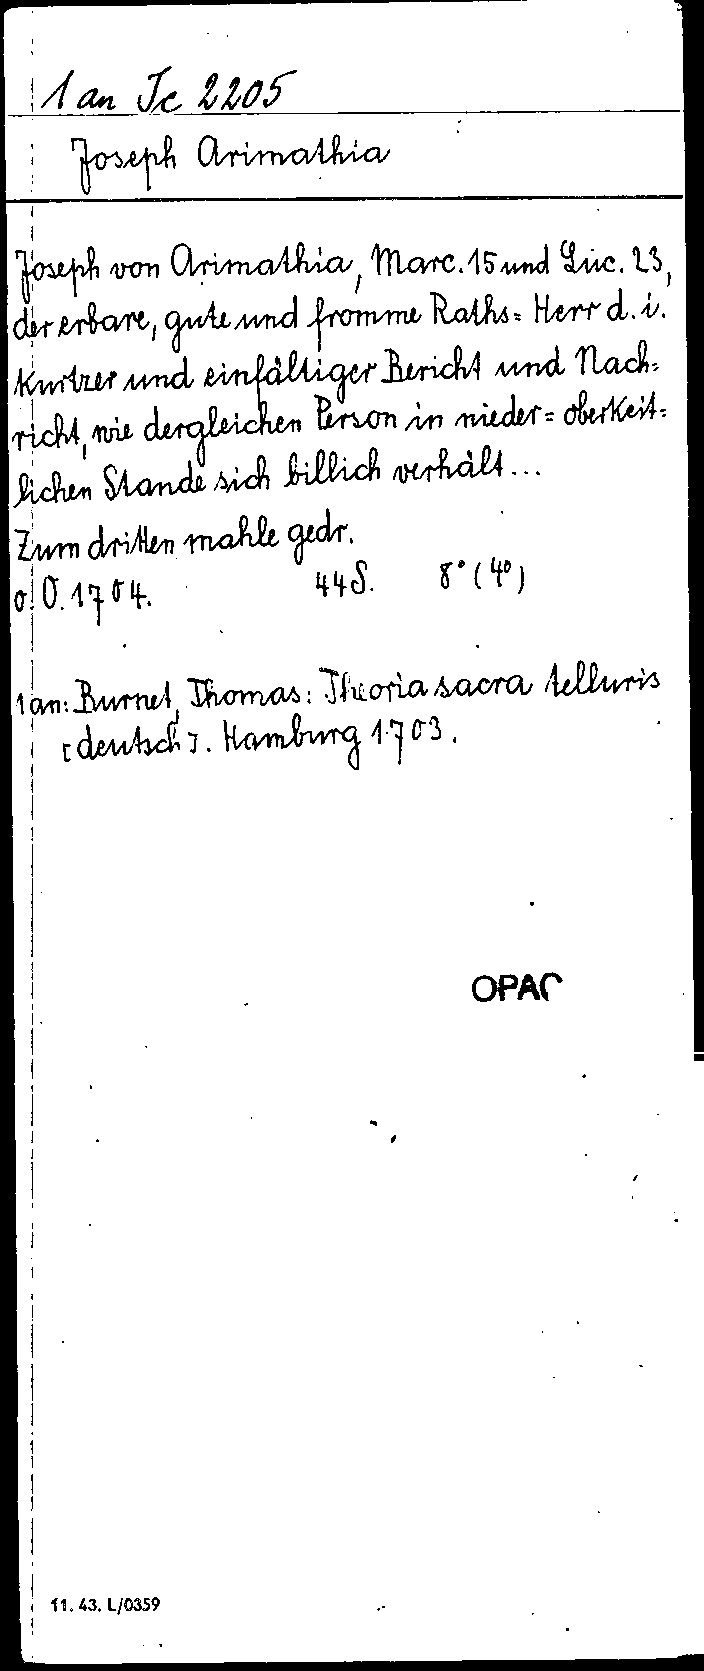 1 an Jc 2205
Joseph Arimathia
Joseph von Arimathia, Marc. 15 und Luc. 23,
der erbare, gute und fromme Raths= Herr d. i.
Kurtzer und einfältiger Bericht und Nach=
richt, wie dergleichen Person in nieder= oberkeit=
lichen Stande sich billich verhält...
Zum dritten mahle gedr.
o. O. 1704. 44 S. 8° (4°)
1 an: Burnet, Thomas: Theoria sacra telluris
[deutsch]. Hamburg 1703.
OPAC
11. 43. L/0359